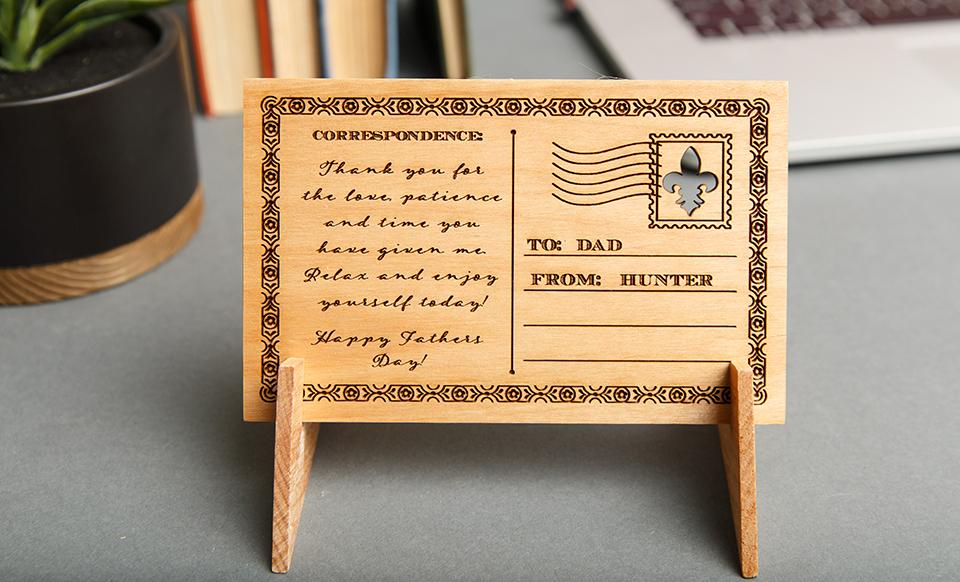 CORRESPONDENCE:
Thank you for
the love, patience
and time you
have given me.
Relax and enjoy
yourself today!
Happy Fathers
Day!
TO: DAD
FROM: HUNTER